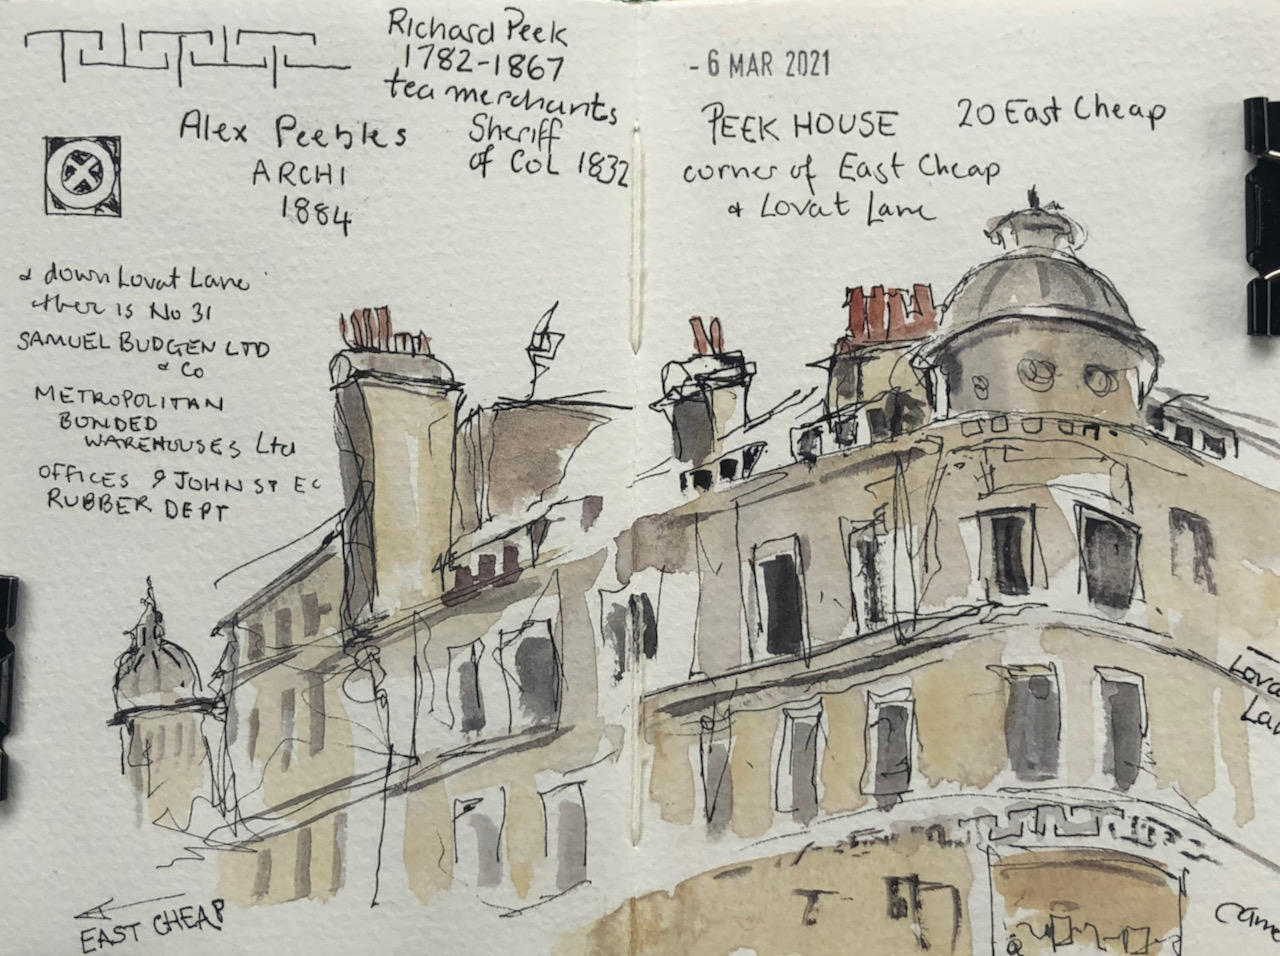 Richard Peek
1782-1867
tea merchants
Sheriff
of CoL 1832
Alex Peebles
ARCHI
1884
& down Lovat Lane
ther is No 31
SAMUEL BUDGEN LTD
& Co
METROPOLITAN
BONDED
WAREHOUSES Ltd
OFFICES 9 JOHN ST EC
RUBBER DEPT
EAST CHEAP
- 6 MAR 2021
PEEK HOUSE 20 East Cheap
corner of East Cheap
& Lovat Lane
Lova
La
Came